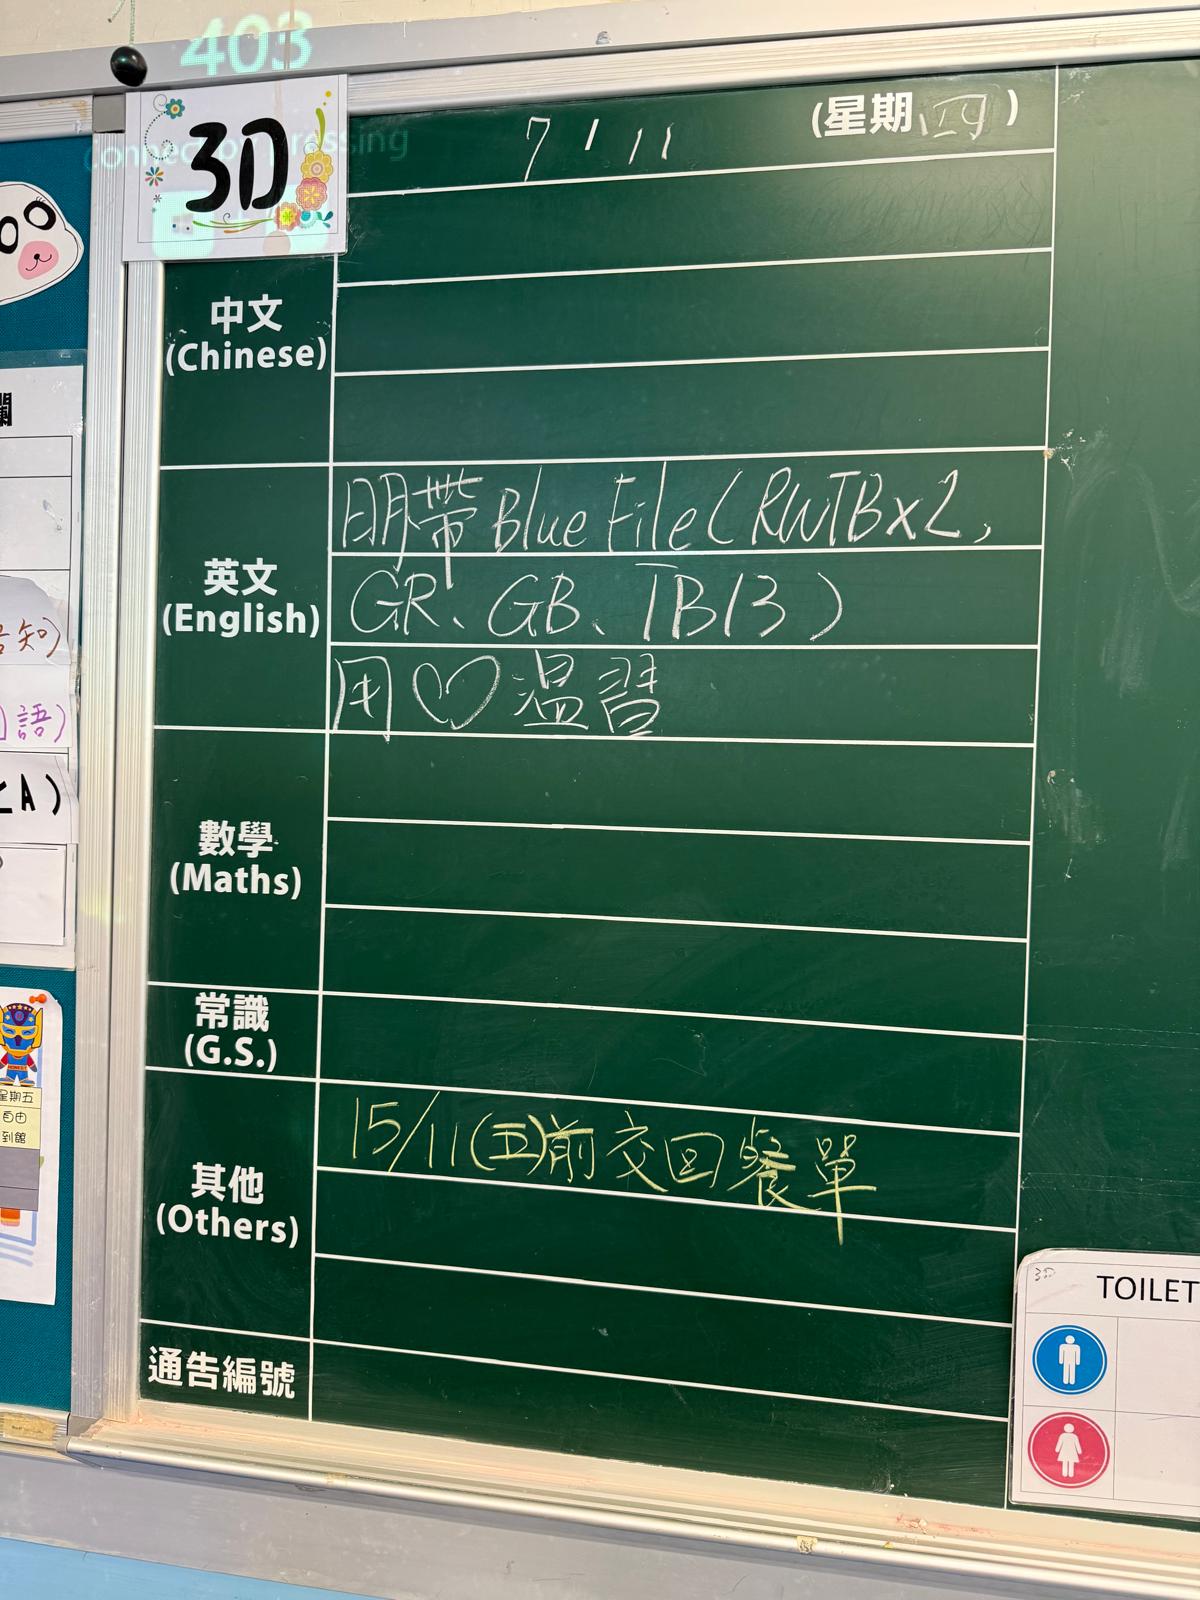 403
connection pressing
3D
7 / 11
(星期四)
中文
(Chinese)
英文
(English)
明帶Blue File(RWTBx2,
GR、GB、TB13)
用♡温習
數學
(Maths)
常識
(G.S.)
其他
(Others)
15/11(五)前交回餐單
通告編號
欄
告知)
語)
A)
星期五
自由
到館
3D
TOILET